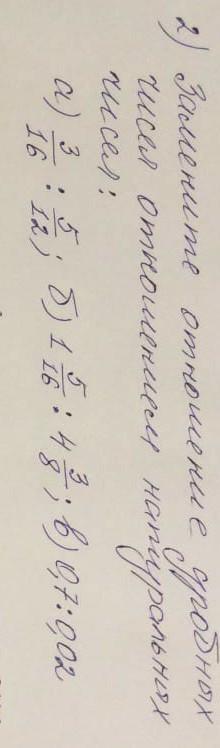 2) Замените отношение дробных
чисел отношением натуральных
чисел:
а) 3/16 : 5/12; б) 1 5/16 : 4 3/8; в) 0,7 : 0,02